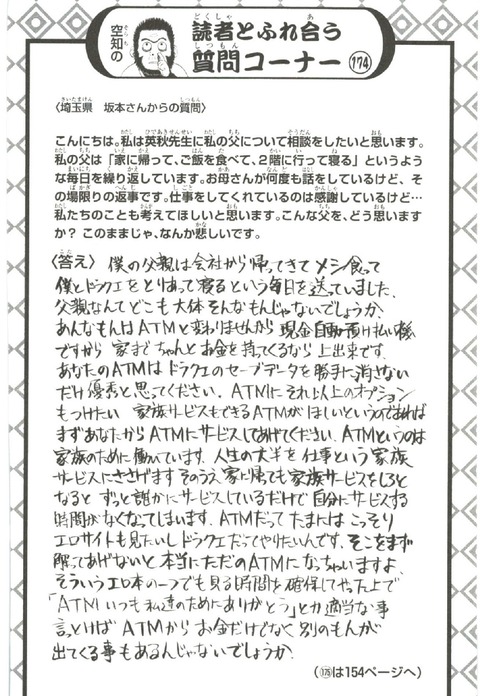 空知の
読者とふれ合う
質問コーナー 174
〈埼玉県　坂本さんからの質問〉
こんにちは。私は英秋先生に私の父について相談をしたいと思います。
私の父は「家に帰って、ご飯を食べて、2階に行って寝る」というよう
な毎日を繰り返しています。お母さんが何度も話をしているけど、そ
の場限りの返事です。仕事をしてくれているのは感謝しているけど…
私たちのことも考えてほしいと思います。こんな父を、どう思います
か？ このままじゃ、なんか悲しいです。
〈答え〉 僕の父親は会社から帰ってきて メシ食って
僕とドラクエをとりあって寝るという毎日を送っていました。
父親なんてどこも大体そんなもんじゃないでしょうか。
あんなもんはATMと変わりませんから 現金自動預け払い機
ですから 家まで ちゃんとお金を持ってくるなら 上出来です。
あなたのATMは ドラクエのセーブデータを勝手に消さない
だけ優秀と思ってください。ATMにそれ以上のオプション
もつけたい 家族サービスもできるATMが ほしいというのであれば
まずあなたからATMにサービスしてあげてください。ATMというのは
家族のために働いています。人生の大半を仕事という家族
サービスにささげます そのうえ家に帰っても家族サービスをしろと
なると ずっと誰かにサービスしているだけで自分にサービスする
時間がなくなってしまいます。ATMだって たまにはこっそり
エロサイトも見たいし ドラクエだってやりたいんです。そこをまず
解ってあげないと本当にただのATMになっちゃいますよ。
そういうエロ本の一つでも見る時間を確保してやった上で
「ATMいつも私達のためにありがとう」とか適当な事
言っとけば ATMから お金だけでなく 別のもんが
出てくる事もあるんじゃないでしょうか。
（175は154ページへ）